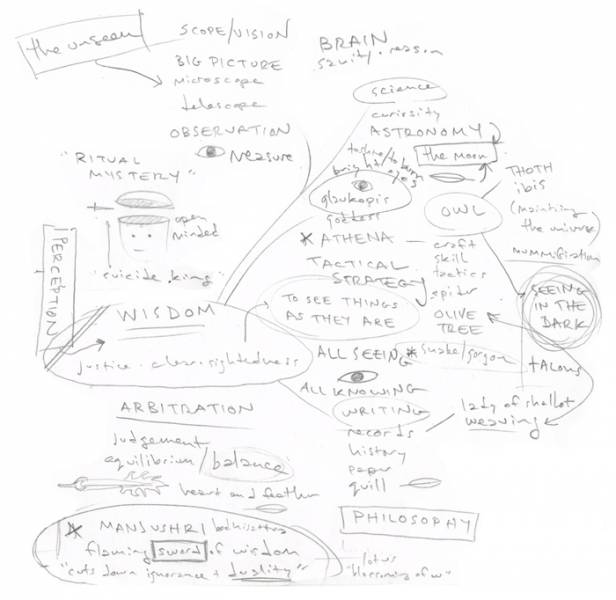 the unseen
SCOPE/VISION
BIG PICTURE
microscope
telescope
OBSERVATION
measure
BRAIN
sanity · reason
science
curiosity
ASTRONOMY
the moon
to burn
bright eyes
glaukopis
goddess
* ATHENA
TACTICAL
STRATEGY
OWL
craft
skill
tactics
spider
OLIVE
TREE
* snake/gorgon
THOTH
ibis
(maintaining
the universe)
mummification
SEEING
IN THE
DARK
talons
"RITUAL
MYSTERY"
open
minded
"suicide king"
PERCEPTION
WISDOM
justice · clear-sightedness
TO SEE THINGS
AS THEY ARE
ALL SEEING
ALL KNOWING
WRITING
records
history
paper
quill
lady of shallot
weaving
ARBITRATION
judgement
equilibrium/balance
heart and feather
* MANJUSHRI bodhisattva
flaming sword of wisdom
"cuts down ignorance + duality"
PHILOSOPHY
lotus
"blossoming of w"